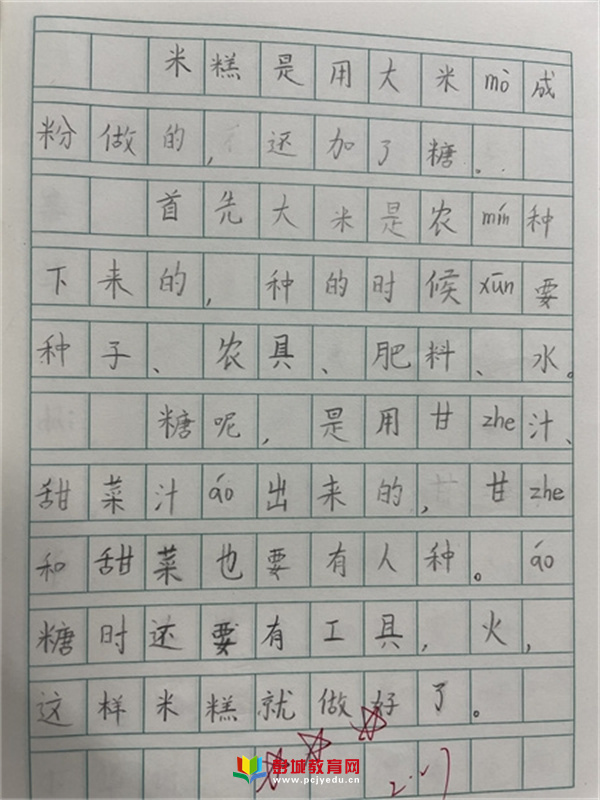 米糕是用大米mò成
粉做的，还加了糖。
首先大米是农mín种
下来的，种的时候xūn要
种子、农具、肥料、水。
糖呢，是用甘zhe汁、
甜菜汁áo出来的，甘zhe
和甜菜也要有人种。áo
糖时还要有工具，火，
这样米糕就做好了。
惠城教育网
www.pcjyedu.cn